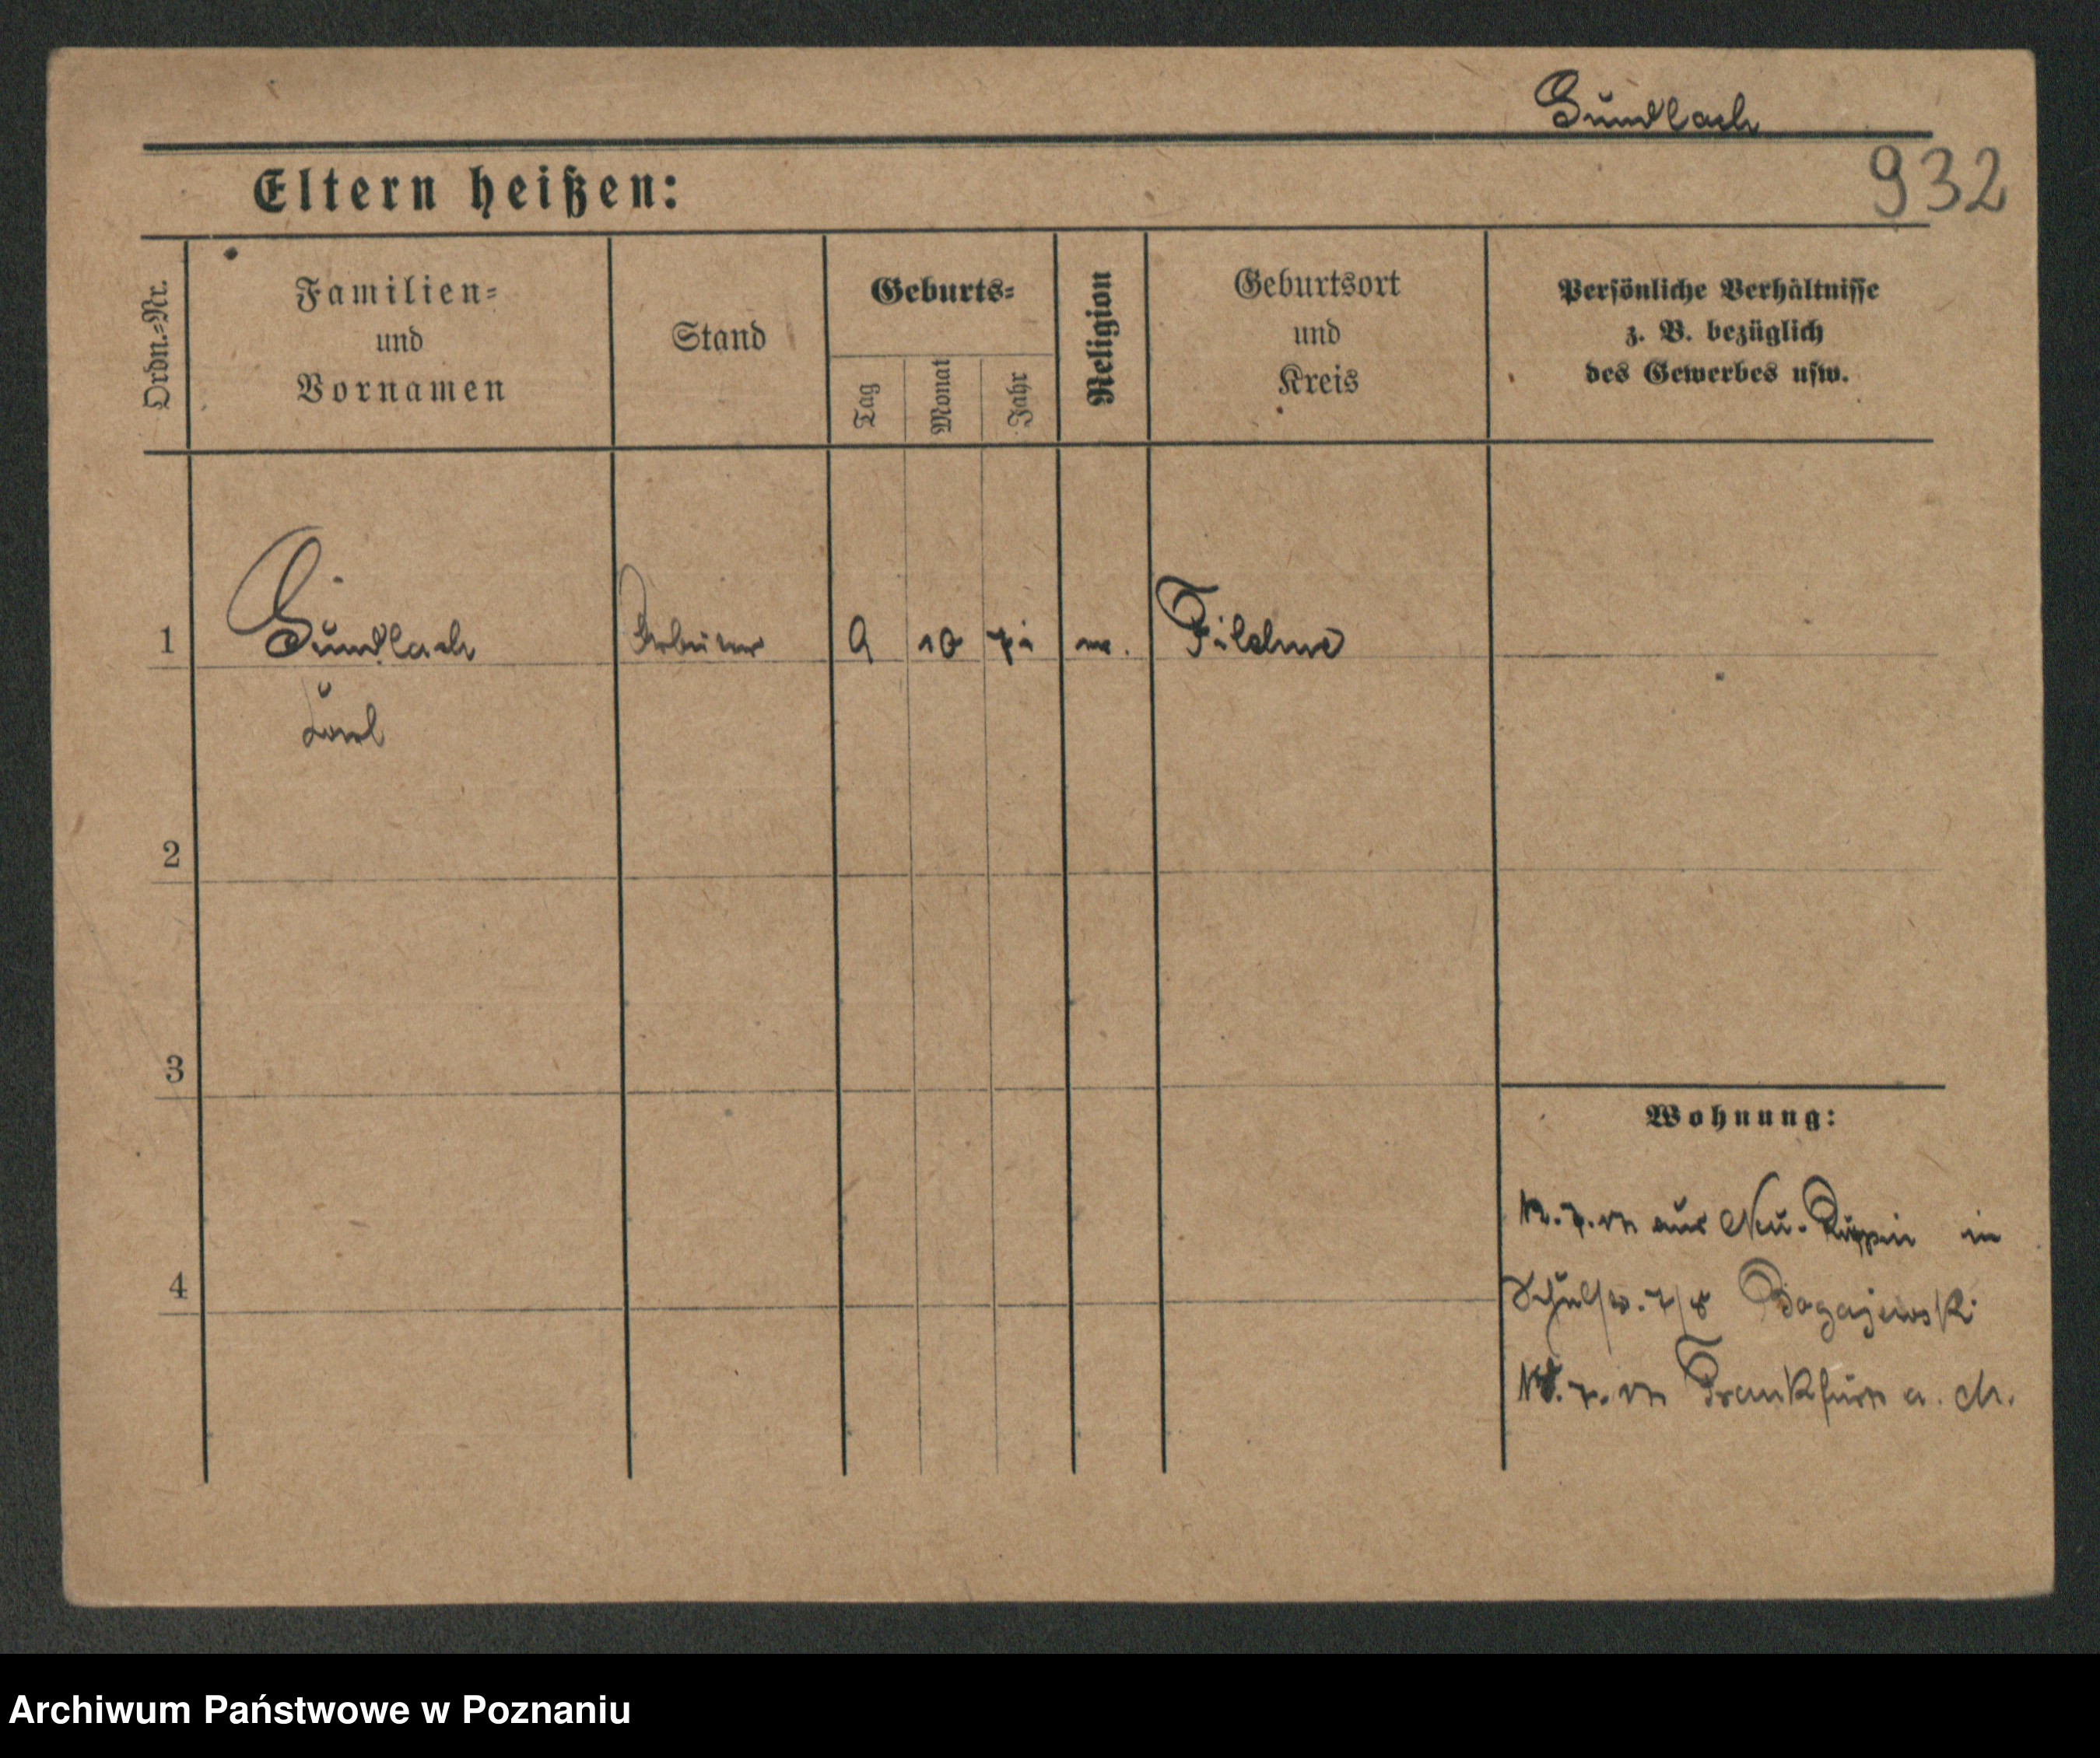 Gundlach
932
Eltern heißen:
Ordn.=Nr.
Familien=
und
Vornamen
Stand
Geburts=
Tag
Monat
Jahr
Religion
Geburtsort
und
Kreis
Persönliche Verhältnisse
z. B. bezüglich
des Gewerbes usw.
1
Gundlach
Arbeiter
9
10
Karl
2
3
4
Wohnung:
aus Neu-Ruppin in
Bogajewski
Frankfurt a. M.
Archiwum Państwowe w Poznaniu